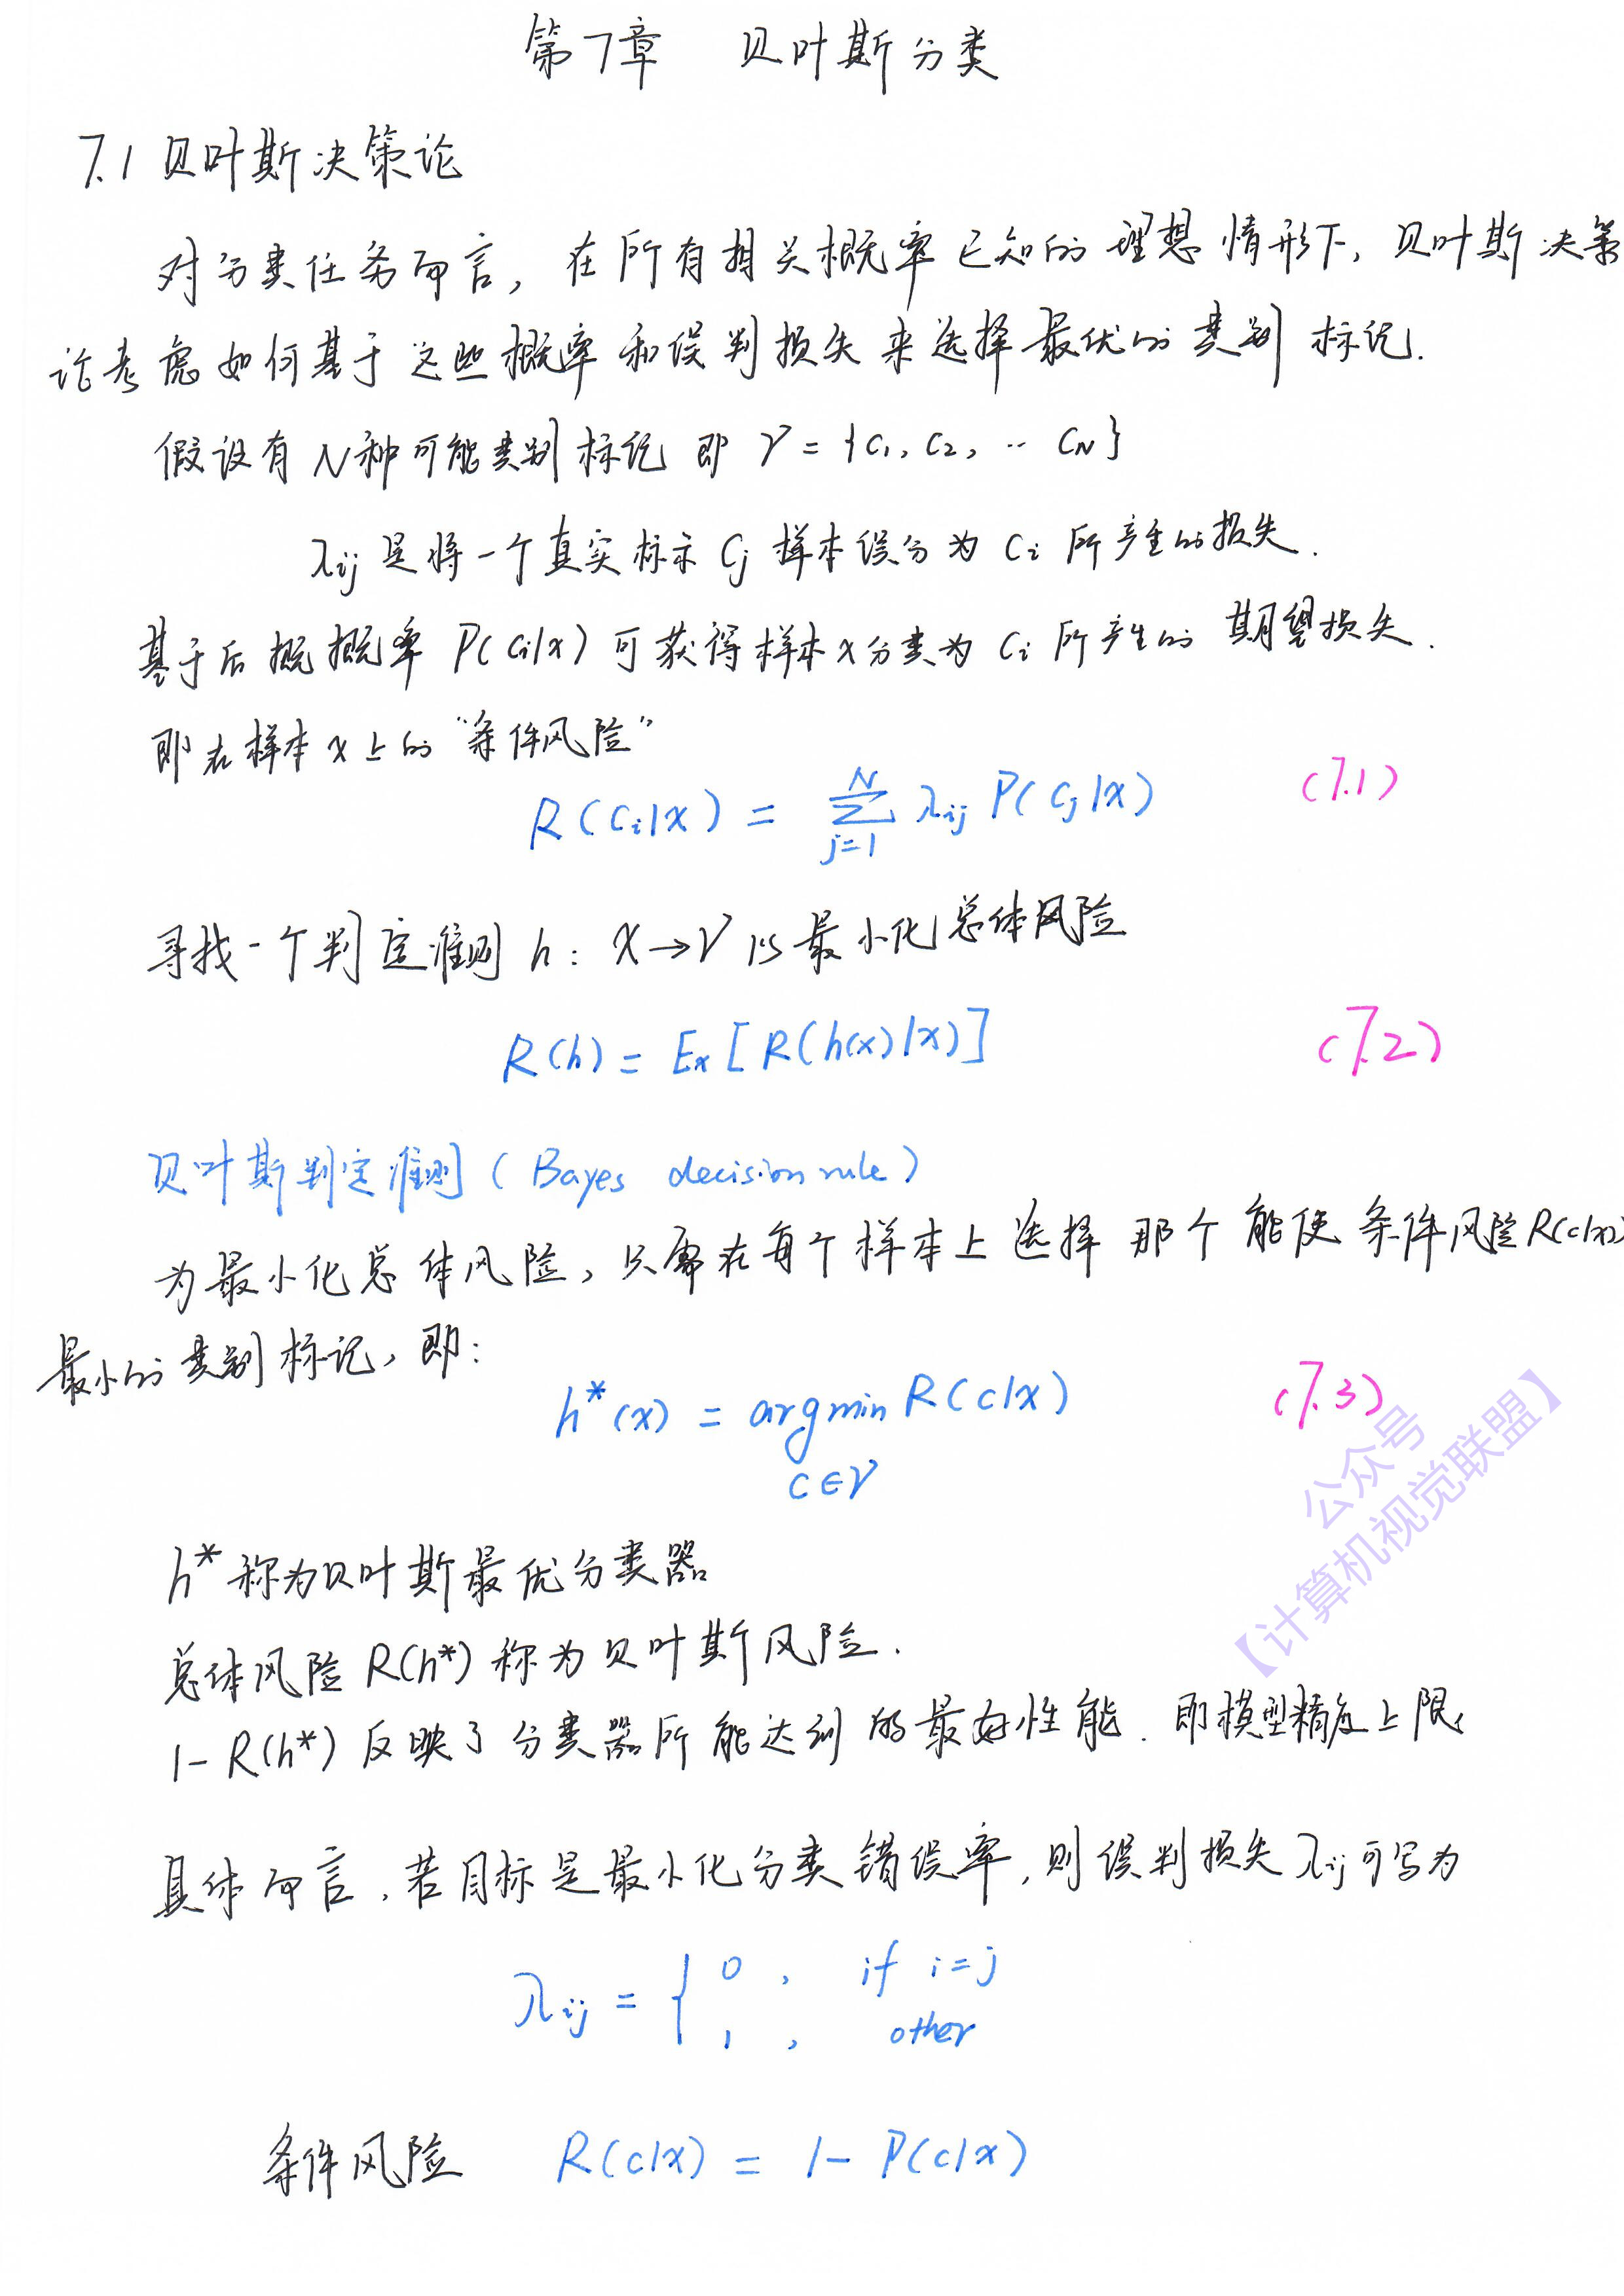 第7章 贝叶斯分类
7.1 贝叶斯决策论
对分类任务而言, 在所有相关概率已知的理想情形下, 贝叶斯决策
论考虑如何基于这些概率和误判损失来选择最优的类别标记.
假设有N种可能类别标记 即 γ = {c₁, c₂, ·· c_N}
λij 是将一个真实标示 Cj 样本误分为 Ci 所产生的损失.
基于后概概率 P(Ci|x) 可获得样本x分类为 Ci 所产生的 期望损失.
即在样本x上的 "条件风险"
R(Ci|x) = ∑_{j=1}^{N} λij P(Cj|x) (7.1)
寻找一个判定准则 h: X→γ 以最小化总体风险
R(h) = Ex[R(h(x)|x)] (7.2)
贝叶斯判定准则 (Bayes decision rule)
为最小化总体风险, 只需在每个样本上选择 那个能使条件风险R(c|x)
最小的类别标记, 即:
h*(x) = argmin R(c|x) (7.3)
c∈γ
h* 称为贝叶斯最优分类器
总体风险 R(h*) 称为贝叶斯风险.
1- R(h*) 反映了分类器所能达到的最好性能. 即模型精度上限.
具体而言, 若目标是最小化分类错误率, 则误判损失λij可写为
λij = { 0 , if i=j
1 , other
条件风险 R(c|x) = 1- P(c|x)
公众号
【计算机视觉联盟】